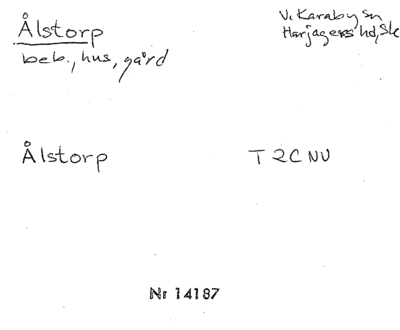 Ålstorp
V. Karaby sn
Harjagers hd, Sk
beb., hus, gård
Ålstorp
T 2C NV
Nr 14187